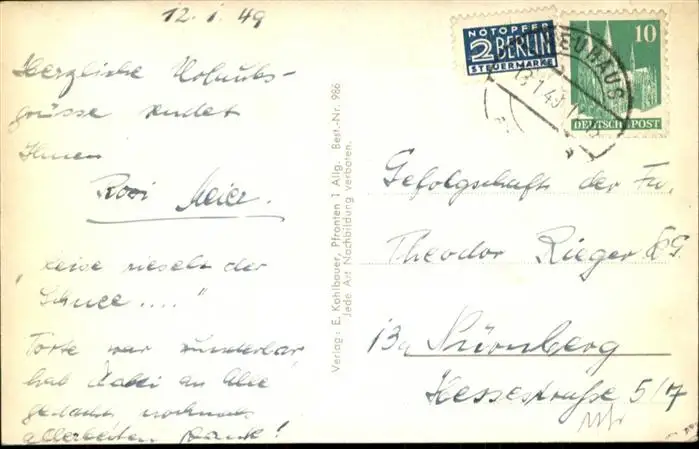 12.1.49
Herzliche Urlaubs-
grüsse sendet
Ihnen
Rosi Meier.
"Leise rieselt der
Schnee...."
Torte war wunderbar,
hab dabei an Alle
gedacht nochmals
allerbesten Dank!
Verlag: E. Kohlbauer, Pfronten 1 Allg. Best.-Nr. 986
Jede Art Nachbildung verboten.
NOTOPFER
2 BERLIN
STEUERMARKE
10
DEUTSCHE POST
NEUHAUS
13.1.49
Gefolgschaft der Fa.
Theodor Rieger KG.
13a Nürnberg
Hessestraße 5/7